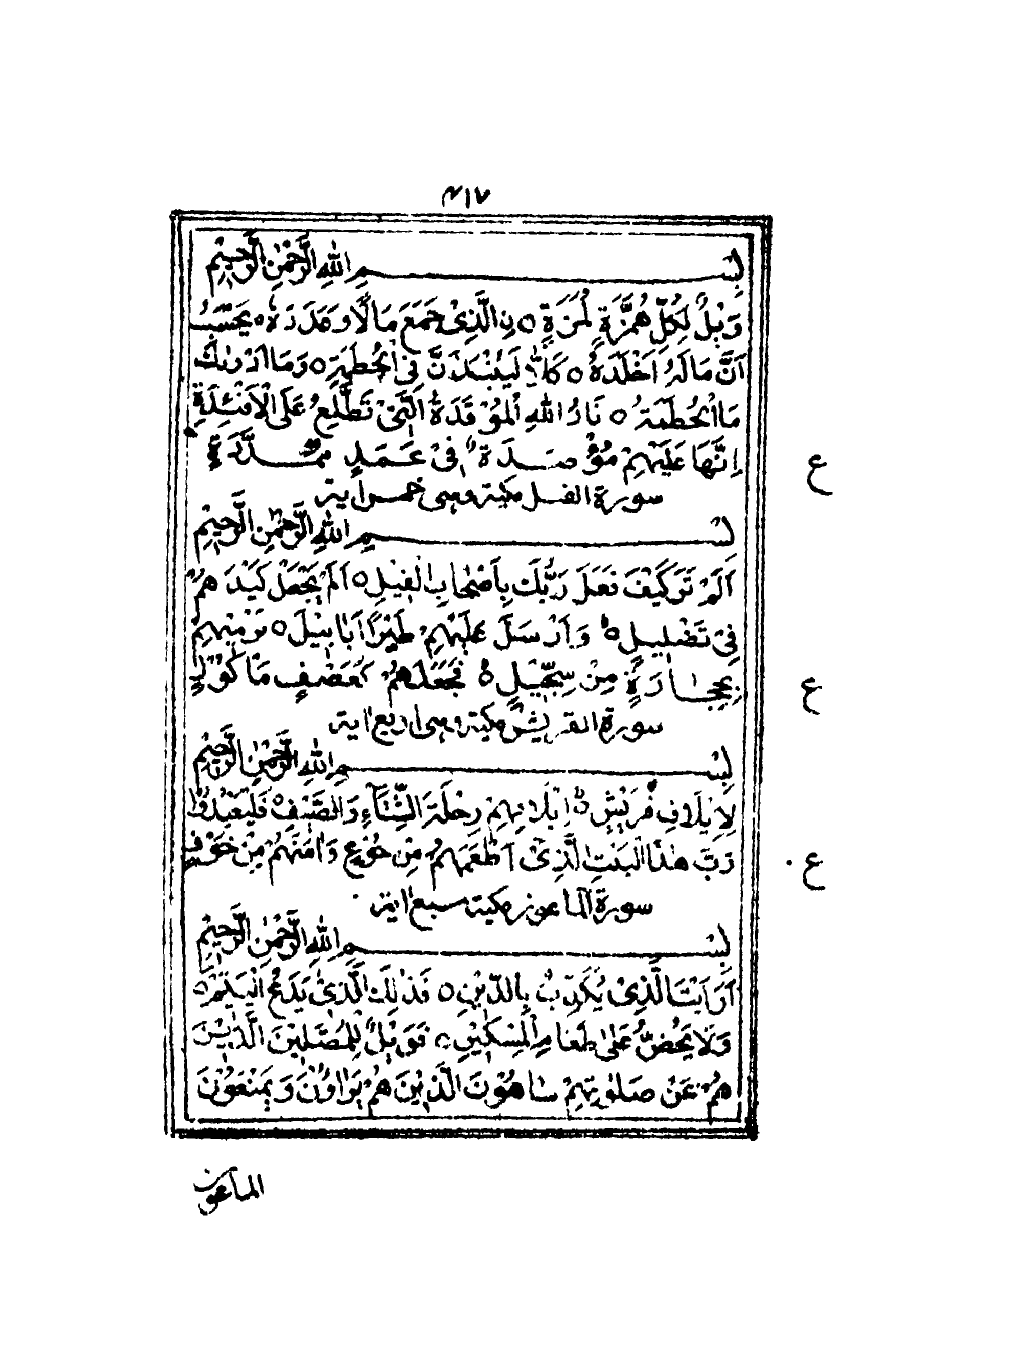 ۴۱۷
بِسْمِ اللهِ الرَّحْمٰنِ الرَّحِيْمِ
وَيْلٌ لِكُلِّ هُمَزَةٍ لُمَزَةٍ ۝ نِ الَّذِىْ جَمَعَ مَالًا وَعَدَّدَهٗ ۝ يَحْسَبُ
اَنَّ مَالَهٗ اَخْلَدَهٗ ۝ كَلَّا لَيُنْبَذَنَّ فِى الْحُطَمَةِ ۝ وَمَا اَدْرٰىكَ
مَا الْحُطَمَةُ ۝ نَارُ اللهِ الْمُوْقَدَةُ الَّتِىْ تَطَّلِعُ عَلَى الْاَفْئِدَةِ
اِنَّهَا عَلَيْهِمْ مُؤْصَدَةٌ فِىْ عَمَدٍ مُمَدَّدَةٍ
ع
سورة الفيل مكية وهى خمس اية
بِسْمِ اللهِ الرَّحْمٰنِ الرَّحِيْمِ
اَلَمْ تَرَ كَيْفَ فَعَلَ رَبُّكَ بِاَصْحَابِ الْفِيْلِ ۝ اَلَمْ يَجْعَلْ كَيْدَهُمْ
فِىْ تَضْلِيْلٍ ۝ وَاَرْسَلَ عَلَيْهِمْ طَيْرًا اَبَابِيْلَ ۝ تَرْمِيْهِمْ
بِحِجَارَةٍ مِنْ سِجِّيْلٍ ۝ فَجَعَلَهُمْ كَعَصْفٍ مَاْكُوْلٍ
ع
سورة القريش مكية وهى اربع اية
بِسْمِ اللهِ الرَّحْمٰنِ الرَّحِيْمِ
لِاِيْلَافِ قُرَيْشٍ ۝ اِيْلَافِهِمْ رِحْلَةَ الشِّتَآءِ وَالصَّيْفِ فَلْيَعْبُدُوْا
رَبَّ هٰذَا الْبَيْتِ الَّذِىْٓ اَطْعَمَهُمْ مِنْ جُوْعٍ وَاٰمَنَهُمْ مِنْ خَوْفٍ
ع
سورة الماعون مكية سبع اية
بِسْمِ اللهِ الرَّحْمٰنِ الرَّحِيْمِ
اَرَاَيْتَ الَّذِىْ يُكَذِّبُ بِالدِّيْنِ ۝ فَذٰلِكَ الَّذِىْ يَدُعُّ الْيَتِيْمَ ۝
وَلَا يَحُضُّ عَلٰى طَعَامِ الْمِسْكِيْنِ ۝ فَوَيْلٌ لِلْمُصَلِّيْنَ الَّذِيْنَ
هُمْ عَنْ صَلٰوتِهِمْ سَاهُوْنَ الَّذِيْنَ هُمْ يُرَاؤُنَ وَيَمْنَعُوْنَ
الماعون